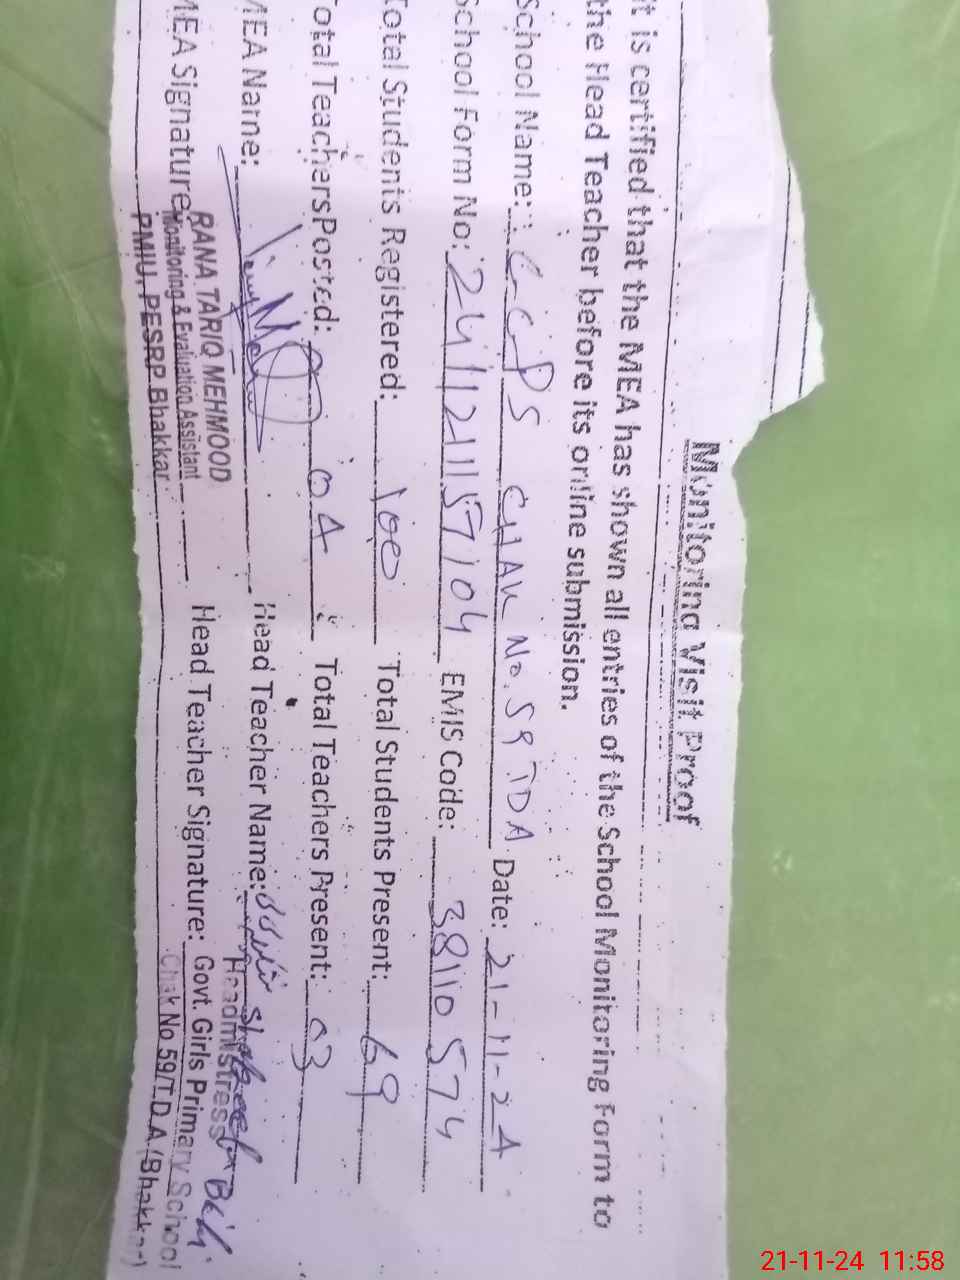 Monitoring Visit Proof
It is certified that the MEA has shown all entries of the School Monitoring Form to
the Head Teacher before its online submission.
School Name: GGPS CHAK No. 59 TDA Date: 21-11-24
School Form No: 2411211157104 EMIS Code: 38110574
Total Students Registered: 100 Total Students Present: 69
Total Teachers Posted: 04 Total Teachers Present: 03
MEA Name: Head Teacher Name: Bibi
MEA Signature: Head Teacher Signature:
RANA TARIQ MEHMOOD
Monitoring & Evaluation Assistant
PMIU, PESRP Bhakkar
Headmistress
Govt. Girls Primary School
Chak No 59/T.D.A (Bhakkar)
21-11-24 11:58